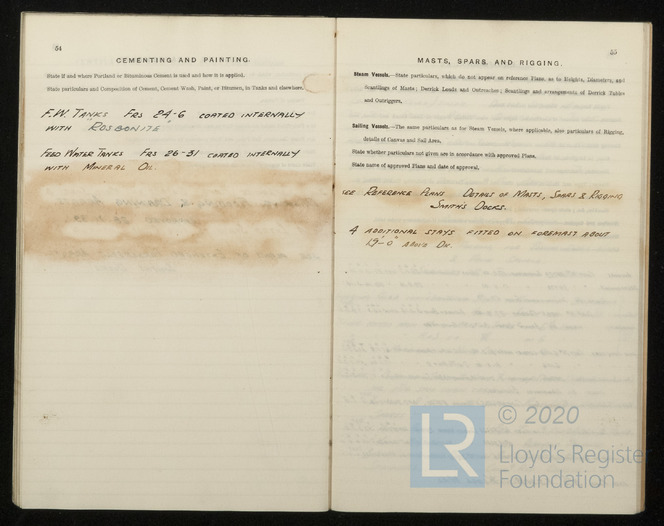 54
CEMENTING AND PAINTING.
State if and where Portland or Bituminous Cement is used and how it is applied.
State particulars and Composition of Cement, Cement Wash, Paint, or Bitumen, in Tanks and elsewhere.
F.W. TANKS FRS 24-6 COATED INTERNALLY
WITH "ROSBONITE"
FEED WATER TANKS FRS 26-31 COATED INTERNALLY
WITH MINERAL OIL.
55
MASTS, SPARS, AND RIGGING.
Steam Vessels.—State particulars, which do not appear on reference Plans, as to Heights, Diameters, and
Scantlings of Masts; Derrick Loads and Outreaches; Scantlings and arrangements of Derrick Tables
and Outriggers.
Sailing Vessels.—The same particulars as for Steam Vessels, where applicable, also particulars of Rigging,
details of Canvas and Sail Area.
State whether particulars not given are in accordance with approved Plans.
State name of approved Plans and date of approval.
SEE REFERENCE PLANS DETAILS OF MASTS, SPARS & RIGGING
SMITH'S DOCKS.
4 ADDITIONAL STAYS FITTED ON FOREMAST ABOUT
19'-0" ABOVE DK.
LR
© 2020
Lloyd's Register
Foundation